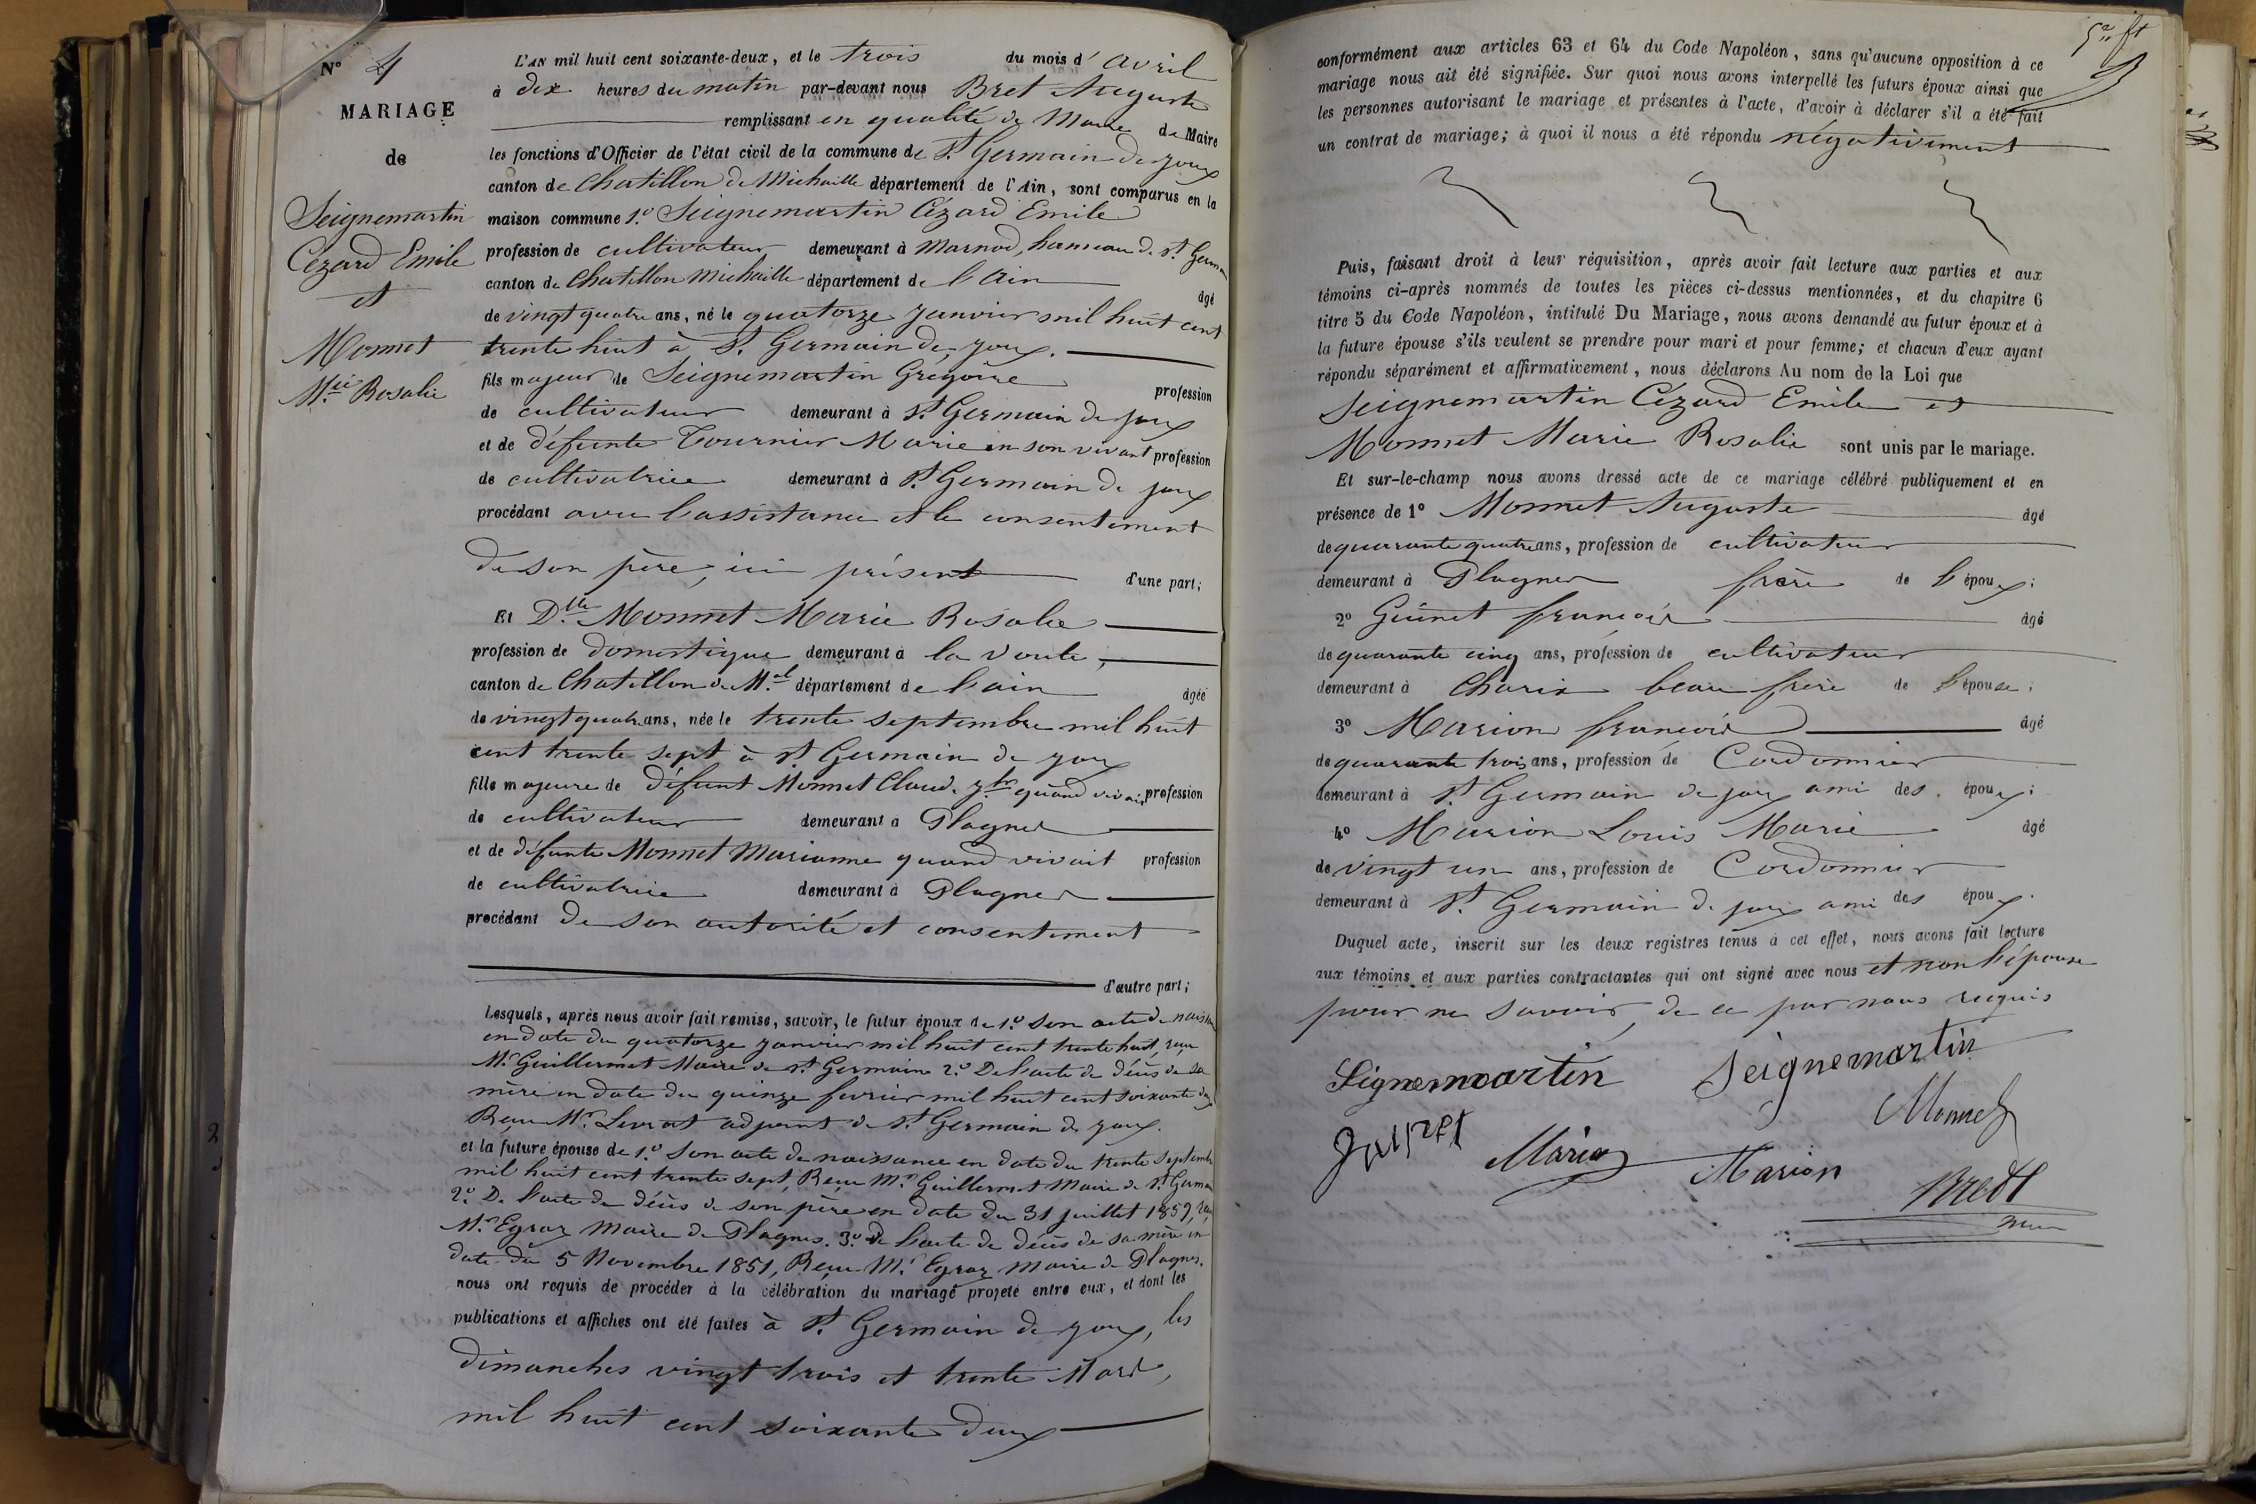 N° 4
MARIAGE
de
Seignemartin
Cézard Emile
et
Monnet
Mie Rosalie
L'AN mil huit cent soixante-deux, et le trois du mois d'avril
à dix heures du matin par-devant nous Bret Auguste
remplissant en qualité de Maire de Maire
les fonctions d'Officier de l'état civil de la commune de St Germain de joux
canton de Chatillon de Michaille département de l'Ain, sont comparus en la
maison commune 1° Seignemartin Cézard Emile
profession de cultivateur demeurant à Marnod, hameau de St Germain
canton de Chatillon Michaille département de l'Ain
âgé
de vingt quatre ans, né le quatorze janvier mil huit cent
trente huit à St Germain de joux.
fils majeur de Seignemartin Grégoire profession
de cultivateur demeurant à St Germain de joux
et de défunte Tournier Marie en son vivant profession
de cultivatrice demeurant à St Germain de joux
procédant avec l'assistance et le consentement
de son père, ici présent d'une part;
Et Dlle Monnet Marie Rosalie
profession de domestique demeurant à la Voute,
canton de Chatillon de Mlle département de l'ain âgée
de vingt quatre ans, née le trente septembre mil huit
cent trente sept à St Germain de joux
fille majeure de défunt Monnet Claude quand vivait profession
de cultivateur demeurant à Plagnes
et de défunte Monnet Marianne quand vivait profession
de cultivatrice demeurant à Plagnes
procédant de son autorité et consentement
d'autre part;
Lesquels, après nous avoir fait remise, savoir, le futur époux de 1° son acte de naissance
en date du quatorze janvier mil huit cent trente huit, reçu
Mr Guillermet Maire de St Germain 2° De l'acte de décès de sa
mère en date du quinze fevrier mil huit cent soixante deux
Reçu Mr Levrat adjoint de St Germain de joux.
et la future épouse de 1° son acte de naissance en date du trente septembre
mil huit cent trente sept, Reçu Mr Guillermet Maire de St Germain
2° De l'acte de décès de son père en date du 31 juillet 1857, reçu
Mr Egraz Maire de Plagnes. 3° de l'acte de décès de sa mère en
date du 5 Novembre 1851, Reçu Mr Egraz Maire de Plagnes.
nous ont requis de procéder à la célébration du mariage projeté entre eux, et dont les
publications et affiches ont été faites à St Germain de joux, les
dimanches vingt trois et trente Mars,
mil huit cent soixante deux
conformément aux articles 63 et 64 du Code Napoléon, sans qu'aucune opposition à ce
mariage nous ait été signifiée. Sur quoi nous avons interpellé les futurs époux ainsi que
les personnes autorisant le mariage et présentes à l'acte, d'avoir à déclarer s'il a été fait
un contrat de mariage; à quoi il nous a été répondu négativement
Puis, faisant droit à leur réquisition, après avoir fait lecture aux parties et aux
témoins ci-après nommés de toutes les pièces ci-dessus mentionnées, et du chapitre 6
titre 5 du Code Napoléon, intitulé Du Mariage, nous avons demandé au futur époux et à
la future épouse s'ils veulent se prendre pour mari et pour femme; et chacun d'eux ayant
répondu séparément et affirmativement, nous déclarons Au nom de la Loi que
Seignemartin Cézard Emile et
Monnet Marie Rosalie sont unis par le mariage.
Et sur-le-champ nous avons dressé acte de ce mariage célébré publiquement et en
présence de 1° Monnet Auguste âgé
de quarante quatre ans, profession de cultivateur
demeurant à Plagnes frère de l'époux;
2° Guinet françois âgé
de quarante cinq ans, profession de cultivateur
demeurant à Charix beau frère de l'épouse;
3° Marion françois âgé
de quarante trois ans, profession de Cordonnier
demeurant à St Germain de joux ami des époux;
4° Marion Louis Marie âgé
de vingt un ans, profession de Cordonnier
demeurant à St Germain de joux ami des époux.
Duquel acte, inscrit sur les deux registres tenus à cet effet, nous avons fait lecture
aux témoins et aux parties contractantes qui ont signé avec nous et non l'épouse
pour ne savoir, de ce par nous requis
Signemoartin Seignemartin
Monnet
Marion Marion
Bret A